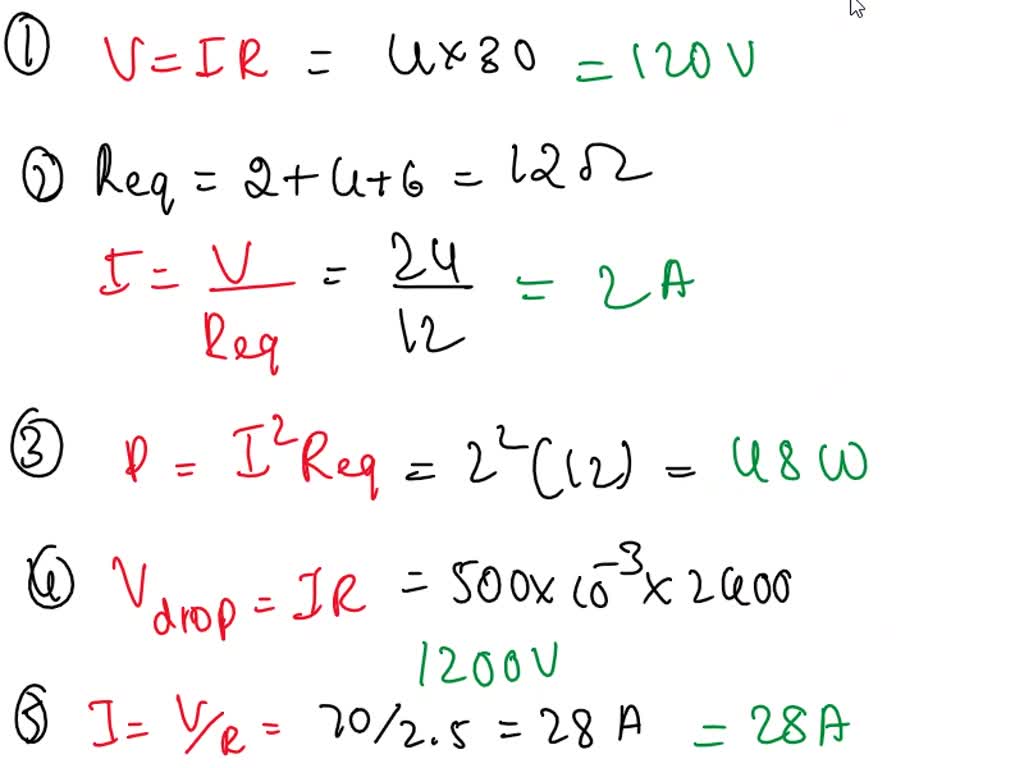 ① V = IR = 4×30 = 120 V
② Req = 2+4+6 = 12 Ω
I = V/Req = 24/12 = 2 A
③ P = I²Req = 2²(12) = 48 W
④ Vdrop = IR = 500×10⁻³×2400
1200V
⑤ I = V/R = 70/2.5 = 28 A = 28A